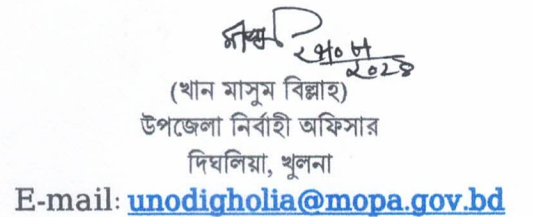 ২০২৪
(খান মাসুম বিল্লাহ)
উপজেলা নির্বাহী অফিসার
দিঘলিয়া, খুলনা
E-mail: unodigholia@mopa.gov.bd